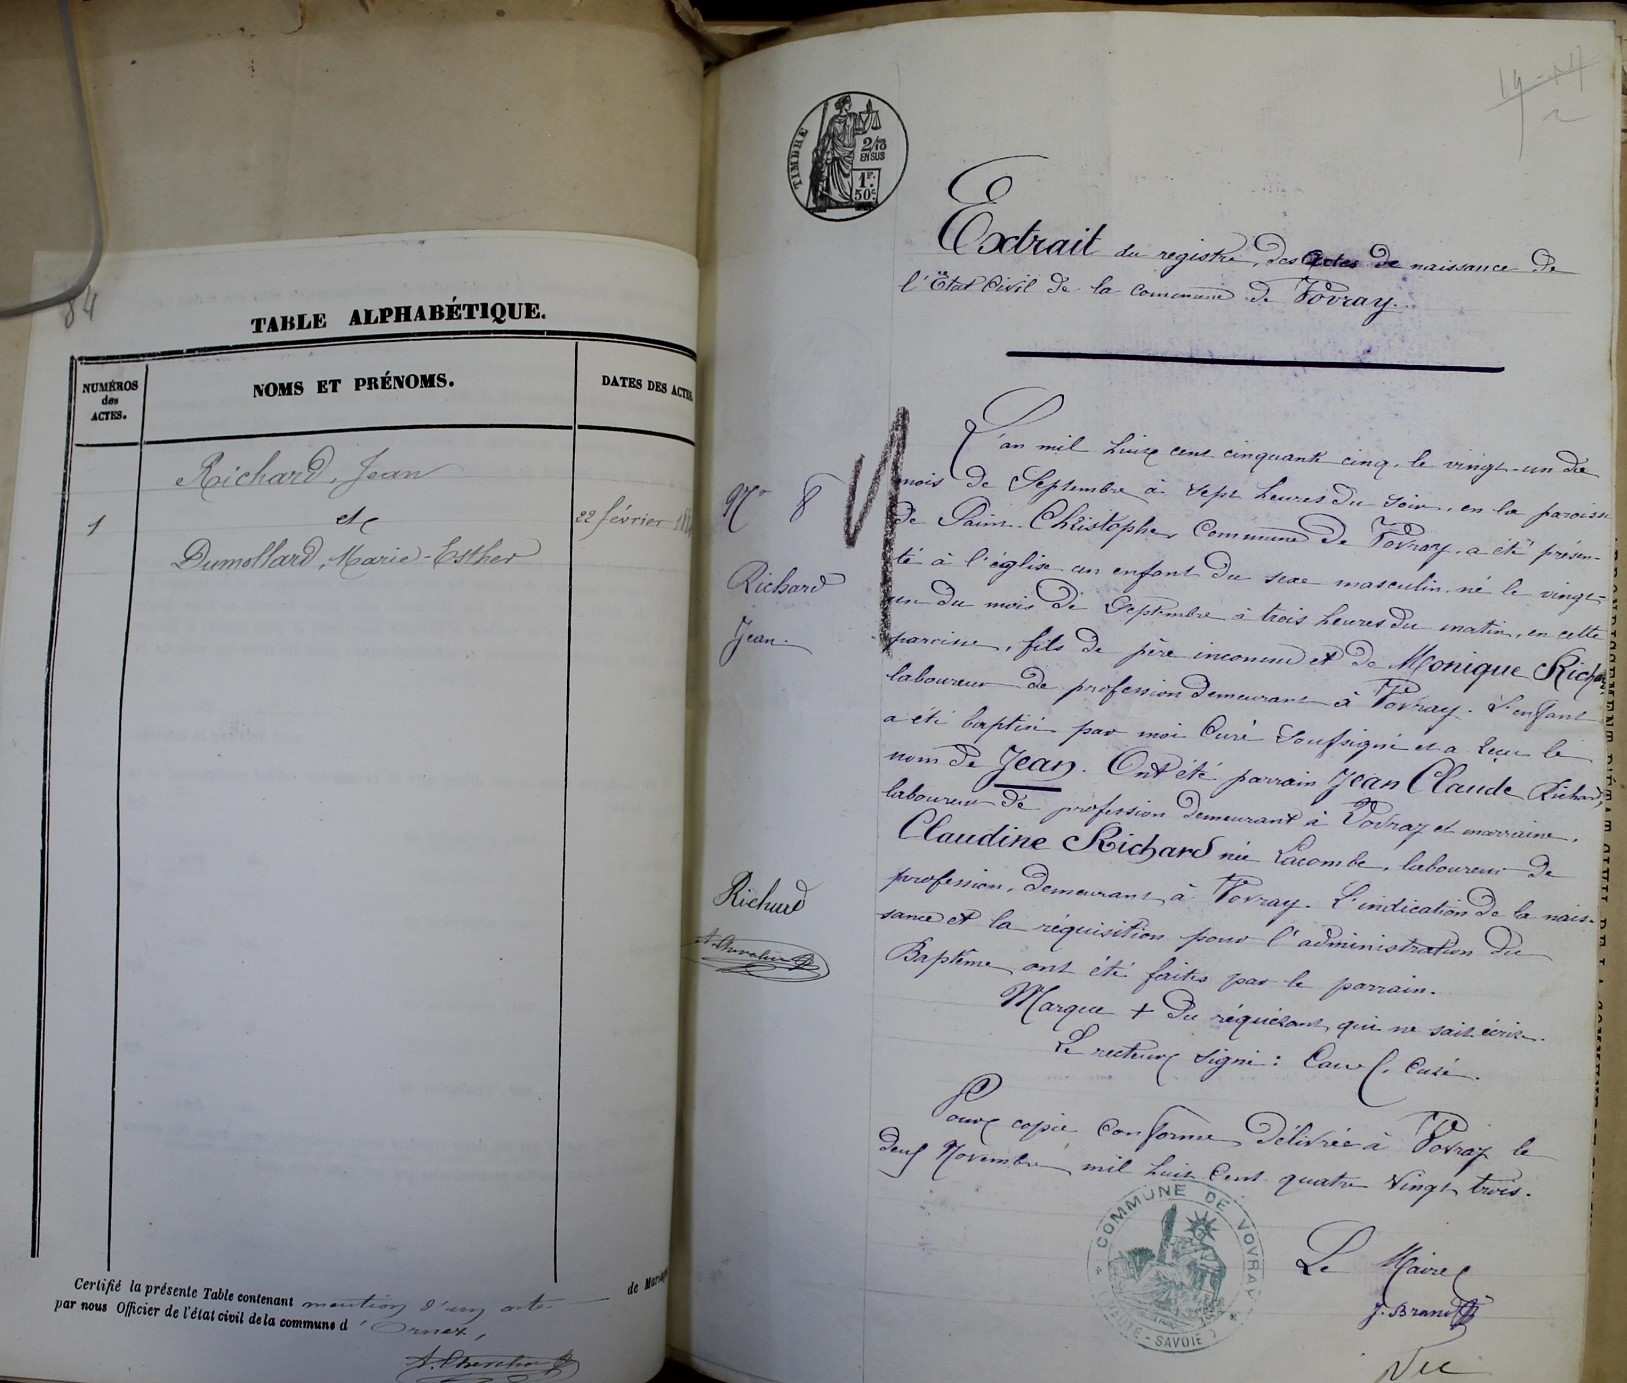 84
TABLE ALPHABÉTIQUE.
NUMÉROS
des
ACTES.
NOMS ET PRÉNOMS.
DATES DES ACTES
Richard, Jean
1
et
22 février
Dumollard, Marie-Esther
Certifié la présente Table contenant mention d'un acte de Mariage
par nous Officier de l'état civil de la commune d'Ornex,
TIMBRE
2/10
EN SUS
1F.
50c
Extrait du registre des actes de naissance de
l'État Civil de la commune de Vovray.
No 8
Richard
Jean
L'an mil huit cent cinquante cinq, le vingt-un du
mois de Septembre à sept heures du soir, en la paroisse
de Saint Christophe, Commune de Vovray, a été présen-
té à l'église un enfant du sexe masculin, né le vingt-
un du mois de Septembre à trois heures du matin, en cette
paroisse, fils de père inconnu et de Monique Richard
laboureur de profession demeurant à Vovray. L'enfant
a été baptisé par moi Curé soussigné et a reçu le
nom de Jean. Ont été parrain Jean Claude Richard,
laboureur de profession demeurant à Vovray et marraine,
Claudine Richard née Lacombe, laboureur de
profession, demeurant à Vovray. L'indication de la nais-
sance et la réquisition pour l'administration du
Baptême ont été faites par le parrain.
Richard
Marque + du réquérant qui ne sait écrire.
Le recteur signé: Curé.
Pour copie conforme délivrée à Vovray le
deux Novembre mil huit Cent quatre vingt trois.
COMMUNE DE VOVRAY
HAUTE-SAVOIE
Le Maire
Vu